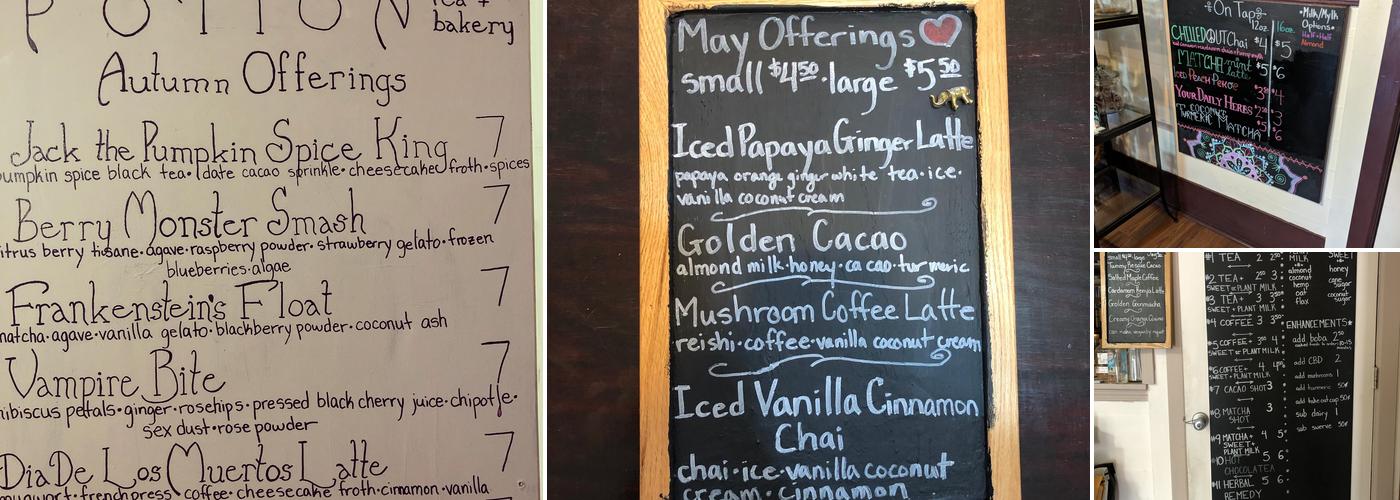 POTION
tea +
bakery
Autumn Offerings
Jack the Pumpkin Spice King 7
pumpkin spice black tea·date cacao sprinkle·cheesecake froth·spices
Berry Monster Smash 7
citrus berry tisane·agave·raspberry powder·strawberry gelato·frozen
blueberries·algae
Frankenstein's Float 7
matcha·agave·vanilla gelato·blackberry powder·coconut ash
Vampire Bite 7
hibiscus petals·ginger·rosehips·pressed black cherry juice·chipotle·
sex dust·rose powder
Dia De Los Muertos Latte 7
mugwort·french press coffee·cheesecake froth·cinnamon·vanilla
May Offerings
small $4.50·large $5.50
Iced Papaya Ginger Latte
papaya orange ginger white tea·ice·
vanilla coconut cream
Golden Cacao
almond milk·honey·cacao·turmeric
Mushroom Coffee Latte
reishi·coffee·vanilla coconut cream
Iced Vanilla Cinnamon
Chai
chai·ice·vanilla coconut
cream·cinnamon
On Tap
12oz 16oz
CHILLEDOUT Chai $4 $5
MATCHA mint latte $5 $6
ICED PEACH PEKOE $4
YOUR DAILY HERBS $3
COCONUT
TURMERIC MATCHA $5 $6
Milk/Mylk
Options
Half+Half
Almond
Tummy Rescue Cacao
Salted Maple Coffee
Cardamom Kenya Latte
Golden Genmaicha
Creamy Orange Cacao
#1 TEA 2 2.50
#2 TEA+ 2.50 3
SWEET or PLANT MILK
#3 TEA+ 3 3.50
SWEET+PLANT MILK
#4 COFFEE 3 3.50
#5 COFFEE+ 3.50 4
SWEET or PLANT MILK
#6 COFFEE+ 4 4.50
SWEET+PLANT MILK
#7 CACAO SHOT 3
#8 MATCHA 3
SHOT
#9 MATCHA+ 4 5
SWEET+
PLANT MILK
#10 HOT 5 6
CHOCOLATEA
#11 HERBAL 5 6
REMEDY
MILK
almond
coconut
hemp
oat
flax
SWEET
honey
cane sugar
coconut sugar
ENHANCEMENTS
add boba 2.50
add CBD 2
add mushrooms 1
add turmeric 50¢
add take out cup 50¢
sub dairy 1
sub swerve 50¢